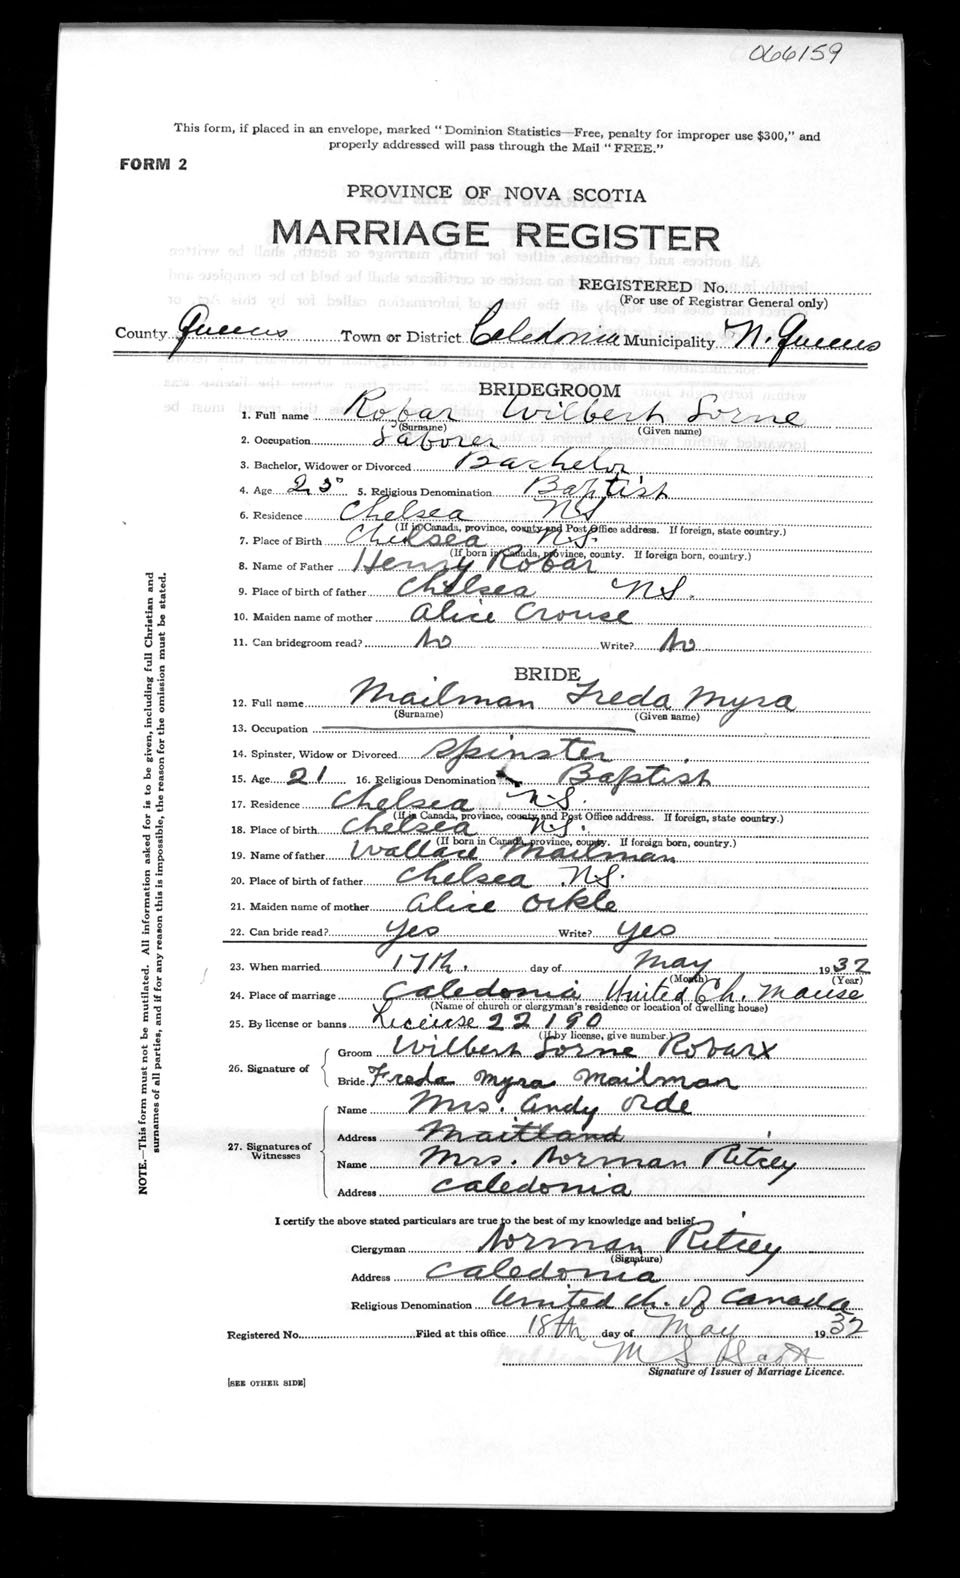 066159
This form, if placed in an envelope, marked "Dominion Statistics—Free, penalty for improper use $300," and
properly addressed will pass through the Mail "FREE."
FORM 2
PROVINCE OF NOVA SCOTIA
MARRIAGE REGISTER
REGISTERED No.
(For use of Registrar General only)
County Queens Town or District Caledonia Municipality N. Queens
BRIDEGROOM
1. Full name Robar Wilbert Lorne
(Surname) (Given name)
2. Occupation Laborer
3. Bachelor, Widower or Divorced Bachelor
4. Age 23 5. Religious Denomination Baptist
6. Residence Chelsea NS
(If in Canada, province, county and Post Office address. If foreign, state country.)
7. Place of Birth Chelsea N.S.
(If born in Canada, province, county. If foreign born, country.)
8. Name of Father Henry Robar
9. Place of birth of father Chelsea N.S.
10. Maiden name of mother Alice Crouse
11. Can bridegroom read? No Write? No
BRIDE
12. Full name Mailman Freda Myra
(Surname) (Given name)
13. Occupation
14. Spinster, Widow or Divorced Spinster
15. Age 21 16. Religious Denomination Baptist
17. Residence Chelsea N.S.
(If in Canada, province, county and Post Office address. If foreign, state country.)
18. Place of birth Chelsea N.S.
(If born in Canada, province, county. If foreign born, country.)
19. Name of father Wallace Mailman
20. Place of birth of father Chelsea N.S.
21. Maiden name of mother Alice Oikle
22. Can bride read? Yes Write? Yes
23. When married 17th. day of May 1932
(Month) (Year)
24. Place of marriage Caledonia United Ch. Manse
(Name of church or clergyman's residence or location of dwelling house)
25. By license or banns License 22190
(If by license, give number.)
26. Signature of Groom Wilbert Lorne Robar x
Bride Freda Myra Mailman
27. Signatures of Witnesses Name Mrs. Andy Orde
Address Maitland
Name Mrs. Norman Ritcey
Address Caledonia
I certify the above stated particulars are true to the best of my knowledge and belief.
Clergyman Norman Ritcey
(Signature)
Address Caledonia
Religious Denomination United Ch. of Canada
Registered No. Filed at this office 18th day of May 1932
M S
Signature of Issuer of Marriage Licence.
[SEE OTHER SIDE]
NOTE.—This form must not be mutilated. All information asked for is to be given, including full Christian and
surnames of all parties, and if for any reason this is impossible, the reason for the omission must be stated.